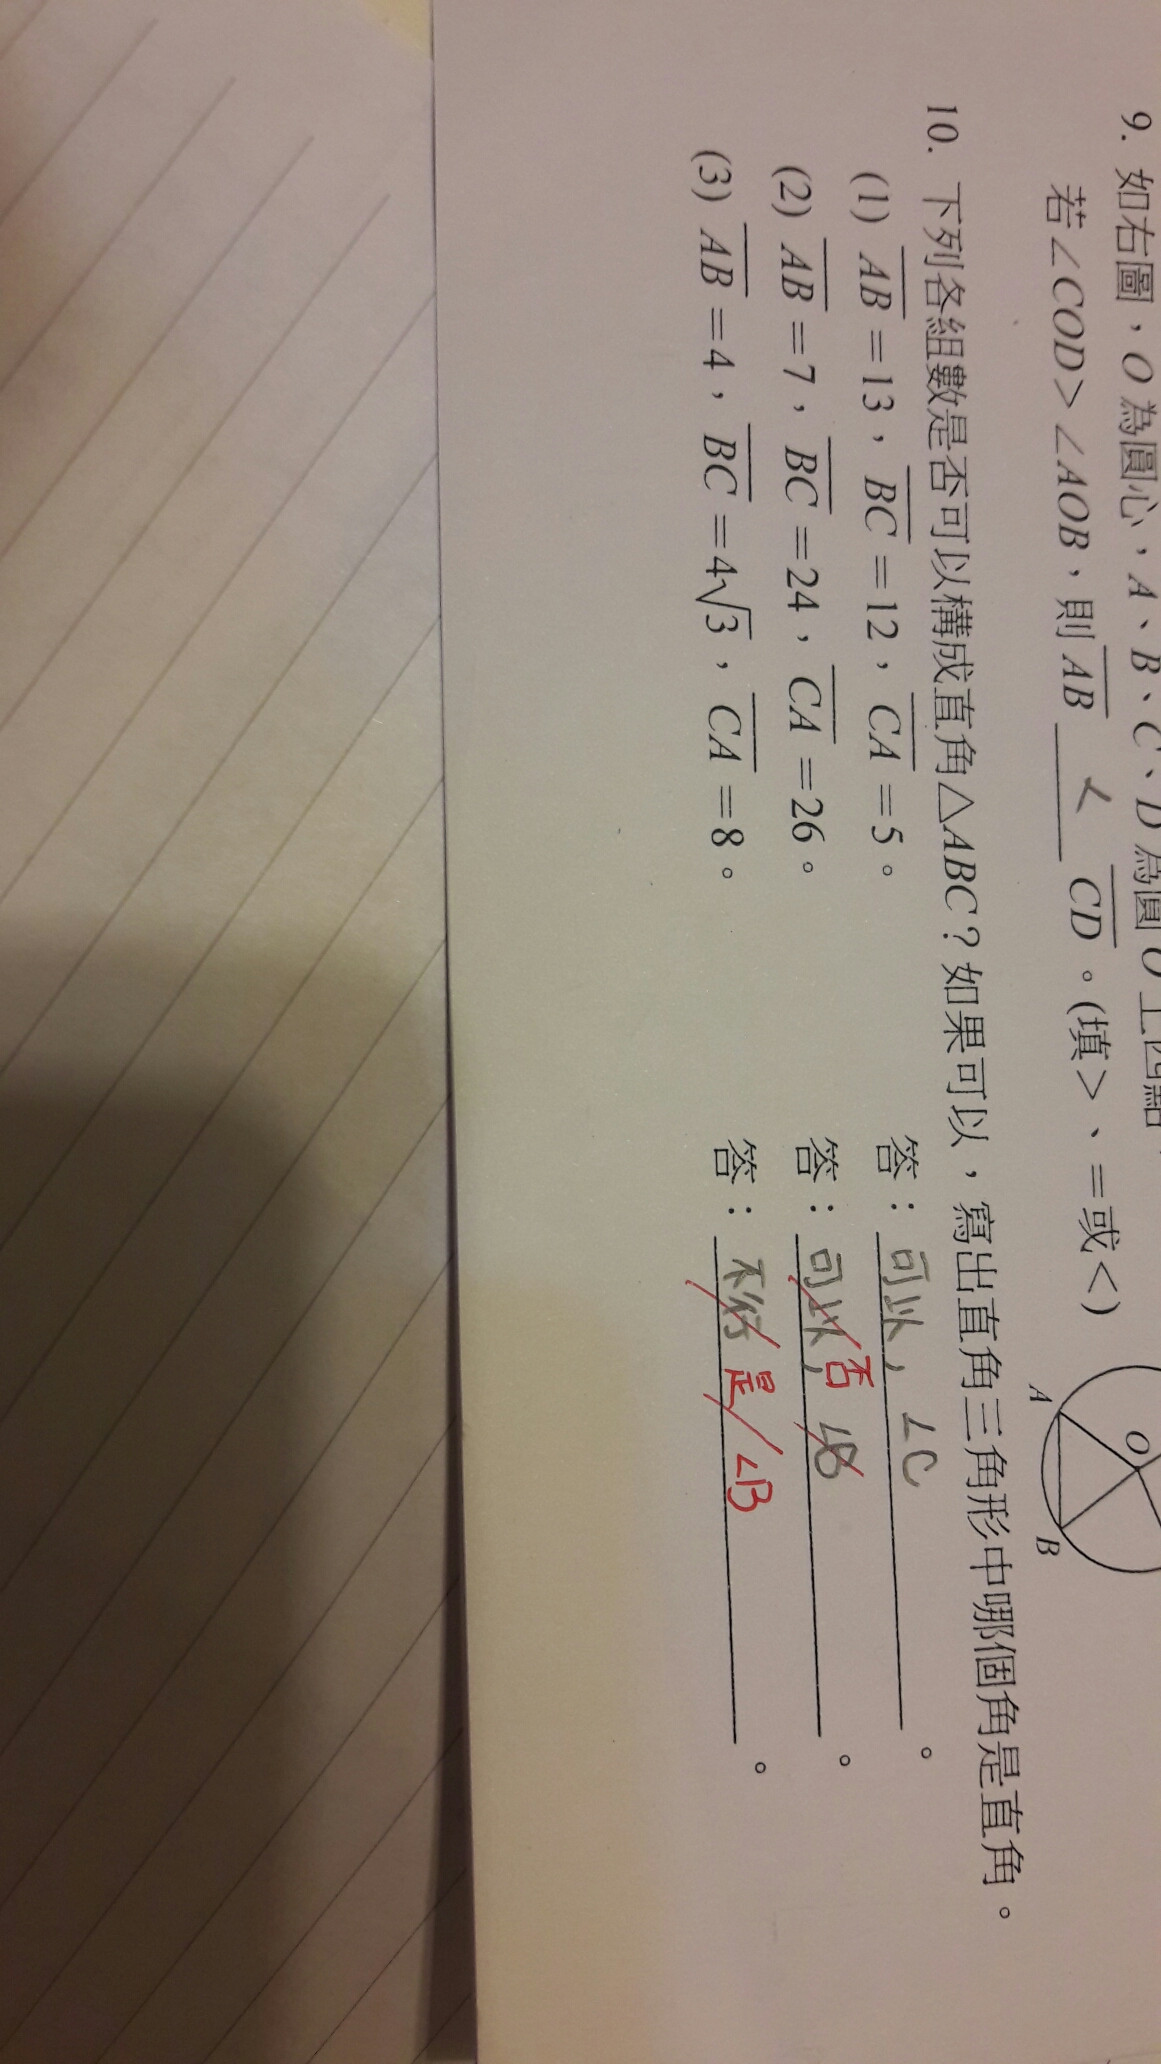 9. 如右圖，O為圓心，A、B、C、D為圓O上四點
若∠COD＞∠AOB，則AB < CD。(填＞、＝或＜)
O
A
B
10. 下列各組數是否可以構成直角△ABC？如果可以，寫出直角三角形中哪個角是直角。
(1) AB＝13，BC＝12，CA＝5。 答：可以，∠C。
(2) AB＝7，BC＝24，CA＝26。 答：可以，否 ∠B。
(3) AB＝4，BC＝4√3，CA＝8。 答：不行 是 ∠B。